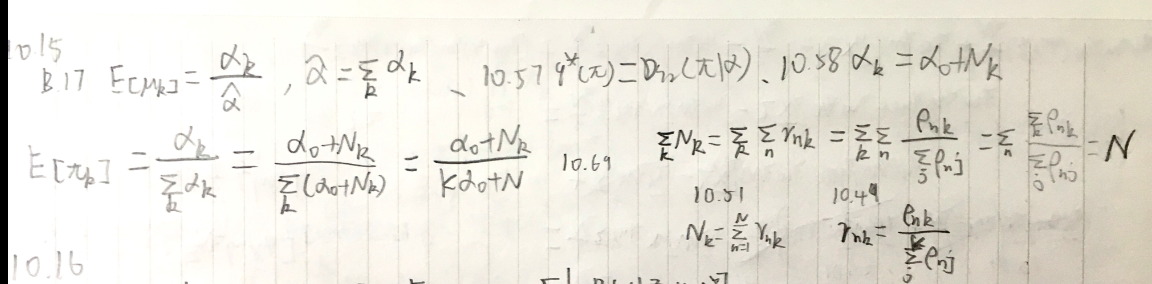 10.15
B.17 E[μk] = αk / α̂ , α̂ = Σk αk 、 10.57 q*(π) = Dir(π|α) 、 10.58 αk = α0+Nk
E[πk] = αk / Σk αk = (α0+Nk) / Σk(α0+Nk) = (α0+Nk) / (Kα0+N) 10.69 Σk Nk = Σk Σn rnk = Σk Σn ρnk / Σj ρnj = Σn Σk ρnk / Σj ρnj = N
10.51 10.49
Nk = Σ(n=1→N) rnk rnk = ρnk / Σ(j→K) ρnj
10.16